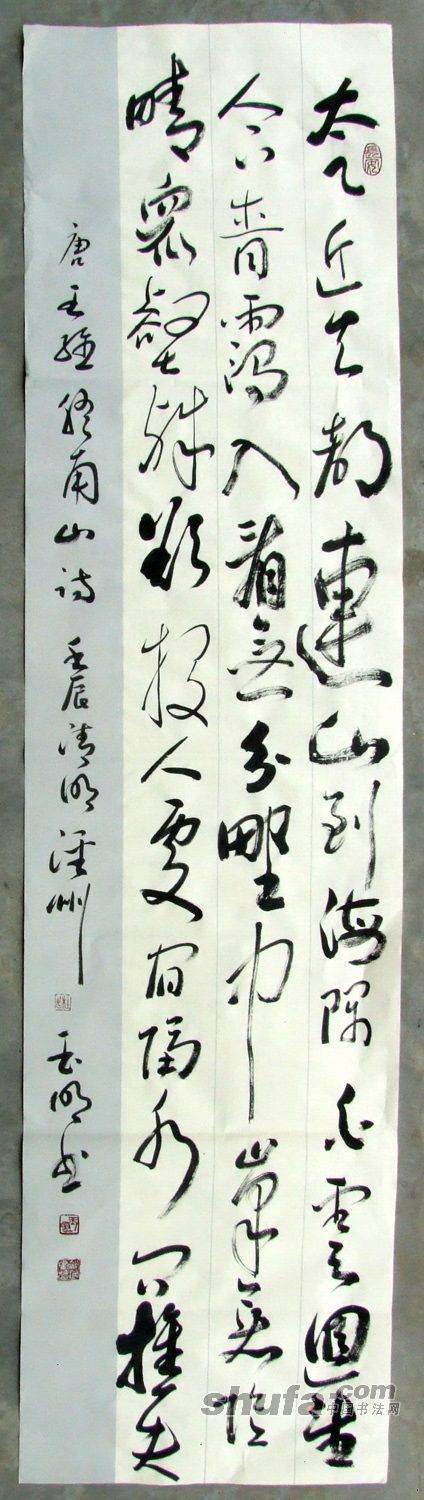 太乙近天都連山到海隅白雲迴望
合青靄入看無分野中峯變陰
晴眾壑殊欲投人處宿隔水問樵夫
唐王維終南山詩 壬辰清明 州 明书
shufa.com
中国书法网